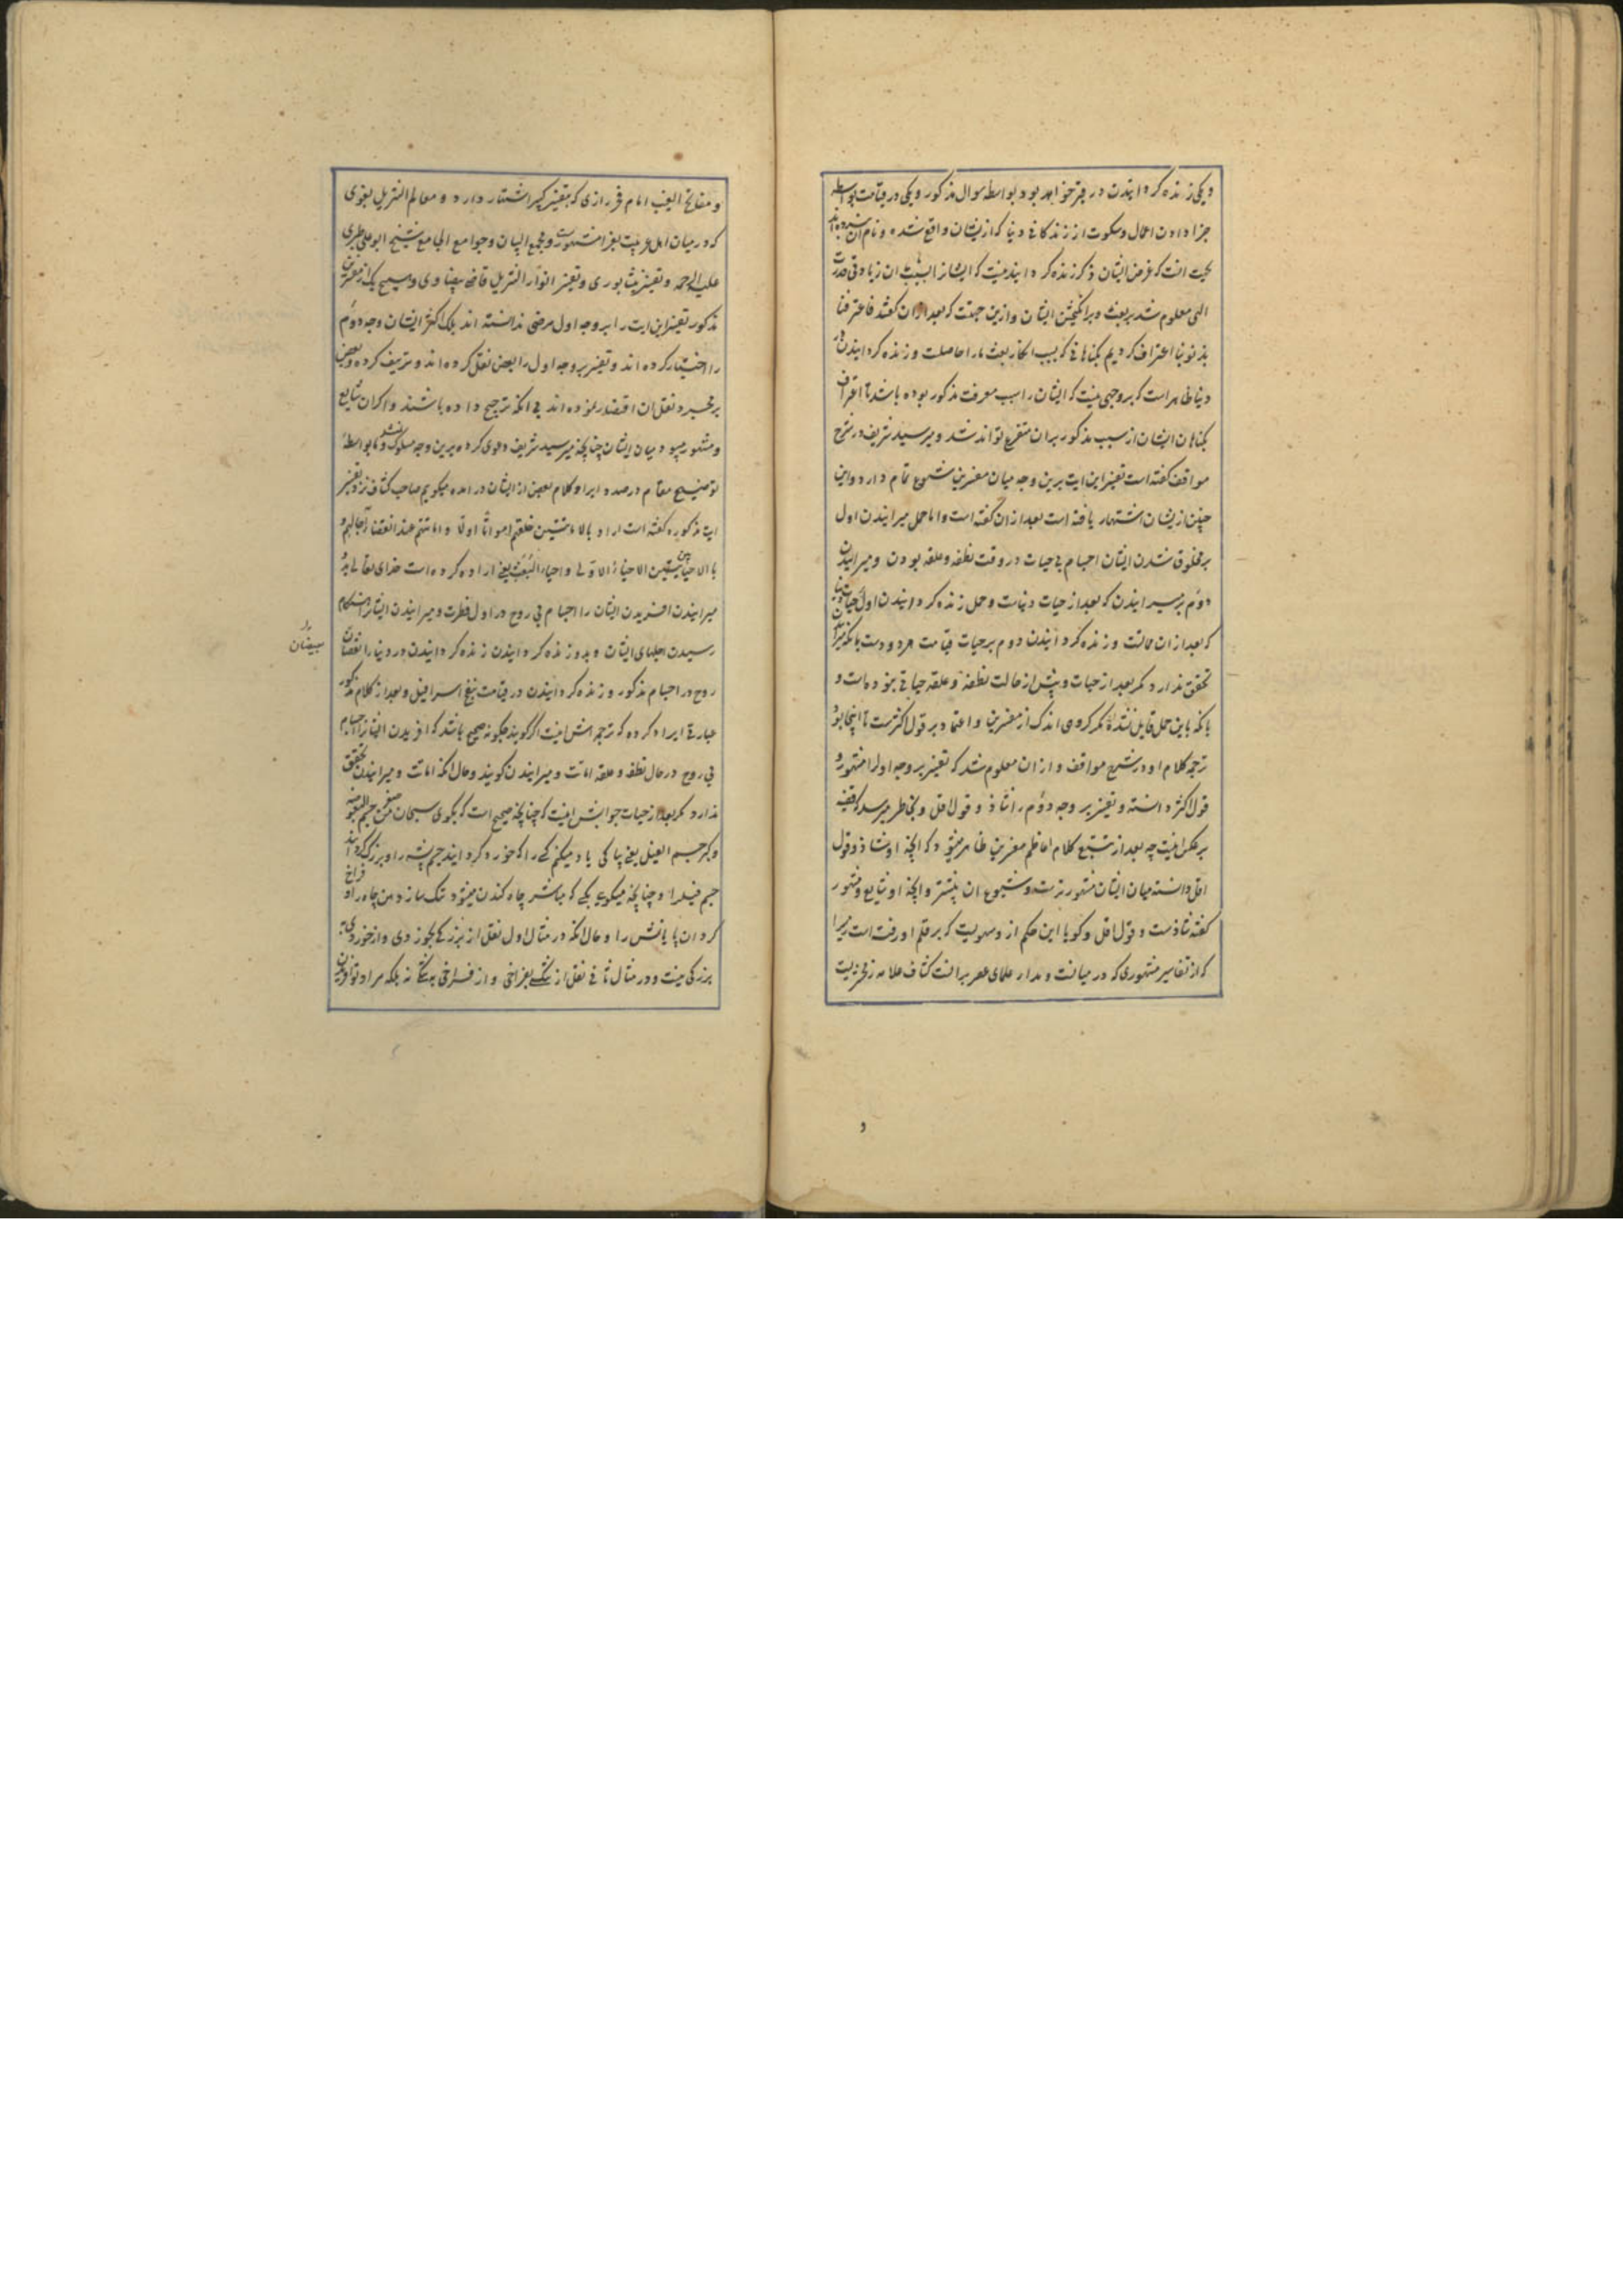 و یکی زنده کردانیدن در قبر خواهد بود بواسطه سوال مذکور و یکی در قیامت بواسطه
جزا دادن اعمال و سکوت از زندکانی دنیا که ازیشان واقع شده و نام ان نبرده اند
بجهت انست که غرض ایشان ذکر زنده کردانیدنیست که ایشانرا بسبب ان زیادتی قدرت
الهی معلوم شد بر بعث و برانکیختن ایشان و ازین جهت که بعد ازان کفتند فاعترفنا
بذنوبنا اعتراف کردیم بکناهانی که بسبب انکار بعث ما را حاصلست و زنده کردانیدن در
دنیا ظاهر است که بر وجهی نیست که ایشان را سبب معرفت مذکور بوده باشد تا اعتراف
بکناهان ایشان از سبب مذکور بران متفرع تواند شد و میر سید شریف در شرح
مواقف کفته است تفسیر این ایت برین وجه میان مفسرین شیوع تمام دارد و این
چنین ازیشان اشتهار یافته است بعد ازان کفته است و اما حمل میرانیدن اول
بر مخلوق شدن ایشان اجسام بی حیات در وقت نطفه و علقه بودن و میرانیدن
دوم بر میرانیدن که بعد از حیات دنیاست و حمل زنده کردانیدن اول بر حیات دنیا
که بعد ازان حالت و زنده کردانیدن دوم بر حیات قیامت مردودست بانکه میرانیدن
تحقق ندارد مکر بعد از حیات و پیش از حالت نطفه و علقه حیاتی نبوده است و
بانکه باین حمل قایل نشده مکر کروهی اندک از مفسرین و اعتماد بر قول اکثرست تا اینجا بود
ترجمه کلام او در شرح مواقف و ازان معلوم شد که تفسیر بر وجه اول را مشهور و
قول اکثر دانسته و تفسیر بر وجه دوم را شاذ و قول اقل و بخاطر میرسد که قضیه
بر عکس اینست چه بعد از تتبع کلام اعاظم مفسرین ظاهر میشود که انچه او شاذ و قول
اقل دانسته میان ایشان مشهورترست و شیوع ان بیشتر و انچه او شایع و مشهور
کفته شاذست و قول اقل و کویا این حکم ازو سهویست که بر قلم او رفته است زیرا
که از تفاسیر مشهوری که در میانست و مدار علمای عصر برانست کشاف علامه زمخشریست
و
و مفاتیح الغیب امام فخر رازی که بتفسیر کبیر اشتهار دارد و معالم التنزیل بغوی
که در میان اهل عربیت بغرا مشهورست و مجمع البیان و جوامع الجامع شیخ ابو علی طبرسی
علیه الرحمه و تفسیر نیشابوری و تفسیر انوار التنزیل قاضی بیضاوی و هیچ یک از مفسرین
مذکور تفسیر این ایت را بر وجه اول مرضی ندانسته اند بلکه اکثر ایشان وجه دوم
را اختیار کرده اند و تفسیر بر وجه اول را بعضی نقل کرده اند و تزییف کرده و بعضی
بر مجرد نقل ان اقتصار نموده اند بی انکه ترجیح داده باشند و اکر ان شایع
و مشهور میبود میان ایشان چنانچه میر سید شریف دعوی کرده برین وجه مسلوک نمیشد و ما بواسطه
توضیح مقام در صدد ایراد کلام بعضی از ایشان در امده میکوییم صاحب کشاف نزد تفسیر
ایت مذکوره کفته است اراد بالاماتتین خلقهم امواتا اولا و اماتتهم عند انقضاء آجالهم و
بالاحیائتین الاحیاءة الاولی و احیاءة البعث یعنی اراده کرده است خدای تعالی بدو
میرانیدن افریدن ایشان را اجسام بی روح در اول فطرت و میرانیدن ایشانرا هنکام
رسیدن اجلهای ایشان و بدو زنده کردانیدن زنده کردانیدن در دنیا را
روح در اجسام مذکور و زنده کردانیدن در قیامت بنفخ اسرافیل و بعد از کلام مذکور
عبارتی ایراد کرده که ترجمه اش اینست اکر کویند چکونه صحیح باشد که افریدن ایشانرا اجسام
بی روح در حال نطفه و علقه اماتت و میرانیدن کویند و حال انکه اماتت و میرانیدن تحقق
ندارد مکر بعد از حیات جوابش اینست که چنانچه صحیح است که بکوی سبحان من صغر جسم البعوضه
و کبر جسم الفیل یعنی پاکی یاد میکنم کسی را که خورد کردانید جسم پشه را و بزرک کردانید
جسم فیل را و چنانچه میکویی بکسی که مباشر چاه کندن میشود تنک ساز دهن چاه را و فراخ
کردان پایانش را و حال انکه در مثال اول نقل از بزرکی بخوردی و از خوردی به
بزرکی نیست و در مثال ثانی نقل از تنکی بفراخی و از فراخی به تنکی نه بلکه مراد تو